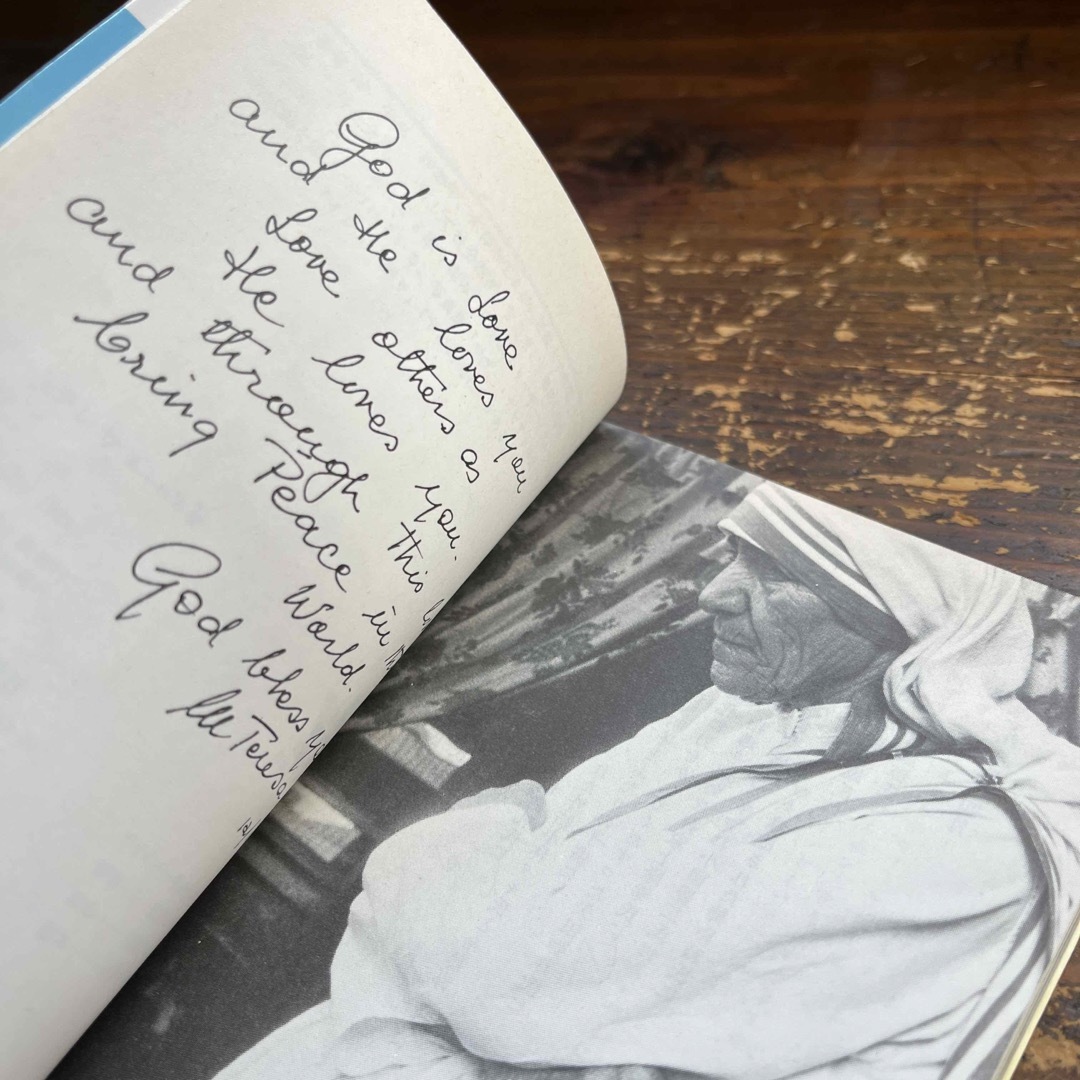 God is Love
and He loves you
Love others as
He loves you.
and through this
bring Peace in
World.
God bless
M Teresa